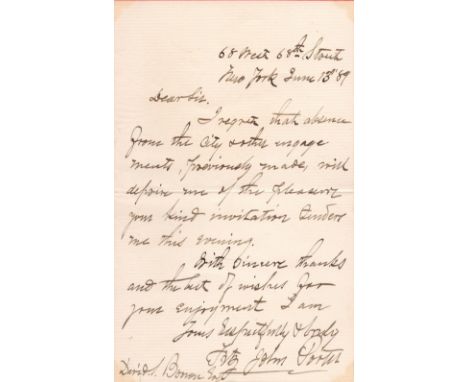 68 West 68th Street
New York June 13th 89
Dear Sir.
I regret that absence
from the City & other engage
ments, previously made, will
deprive me of the pleasure
your kind invitation tenders
me this evening.
With Sincere thanks
and the best of wishes for
your enjoyment I am
Yours Respectfully &
Fitz John Porter
David S.